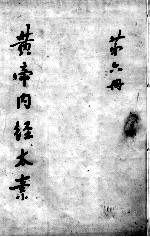 第六册
黄帝内经太素